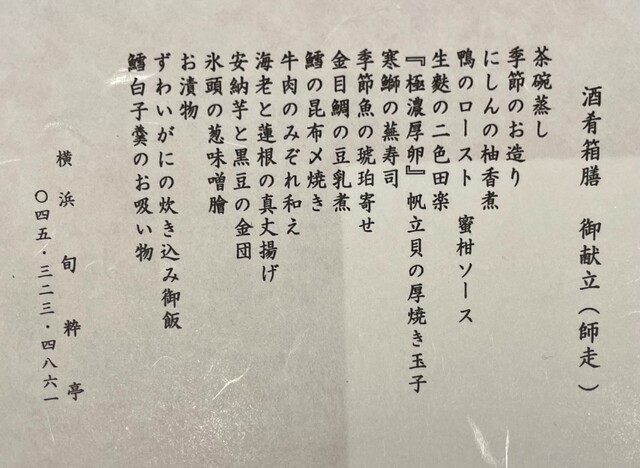 酒肴箱膳　御献立（師走）
茶碗蒸し
季節のお造り
にしんの柚香煮
鴨のロースト　蜜柑ソース
生麩の二色田楽
『極濃厚卵』帆立貝の厚焼き玉子
寒鰤の蕪寿司
季節魚の琥珀寄せ
金目鯛の豆乳煮
鱈の昆布〆焼き
牛肉のみぞれ和え
海老と蓮根の真丈揚げ
安納芋と黒豆の金団
氷頭の葱味噌膾
お漬物
ずわいがにの炊き込み御飯
鱈白子羹のお吸い物
横浜旬粋亭
〇四五・三二三・四八六一